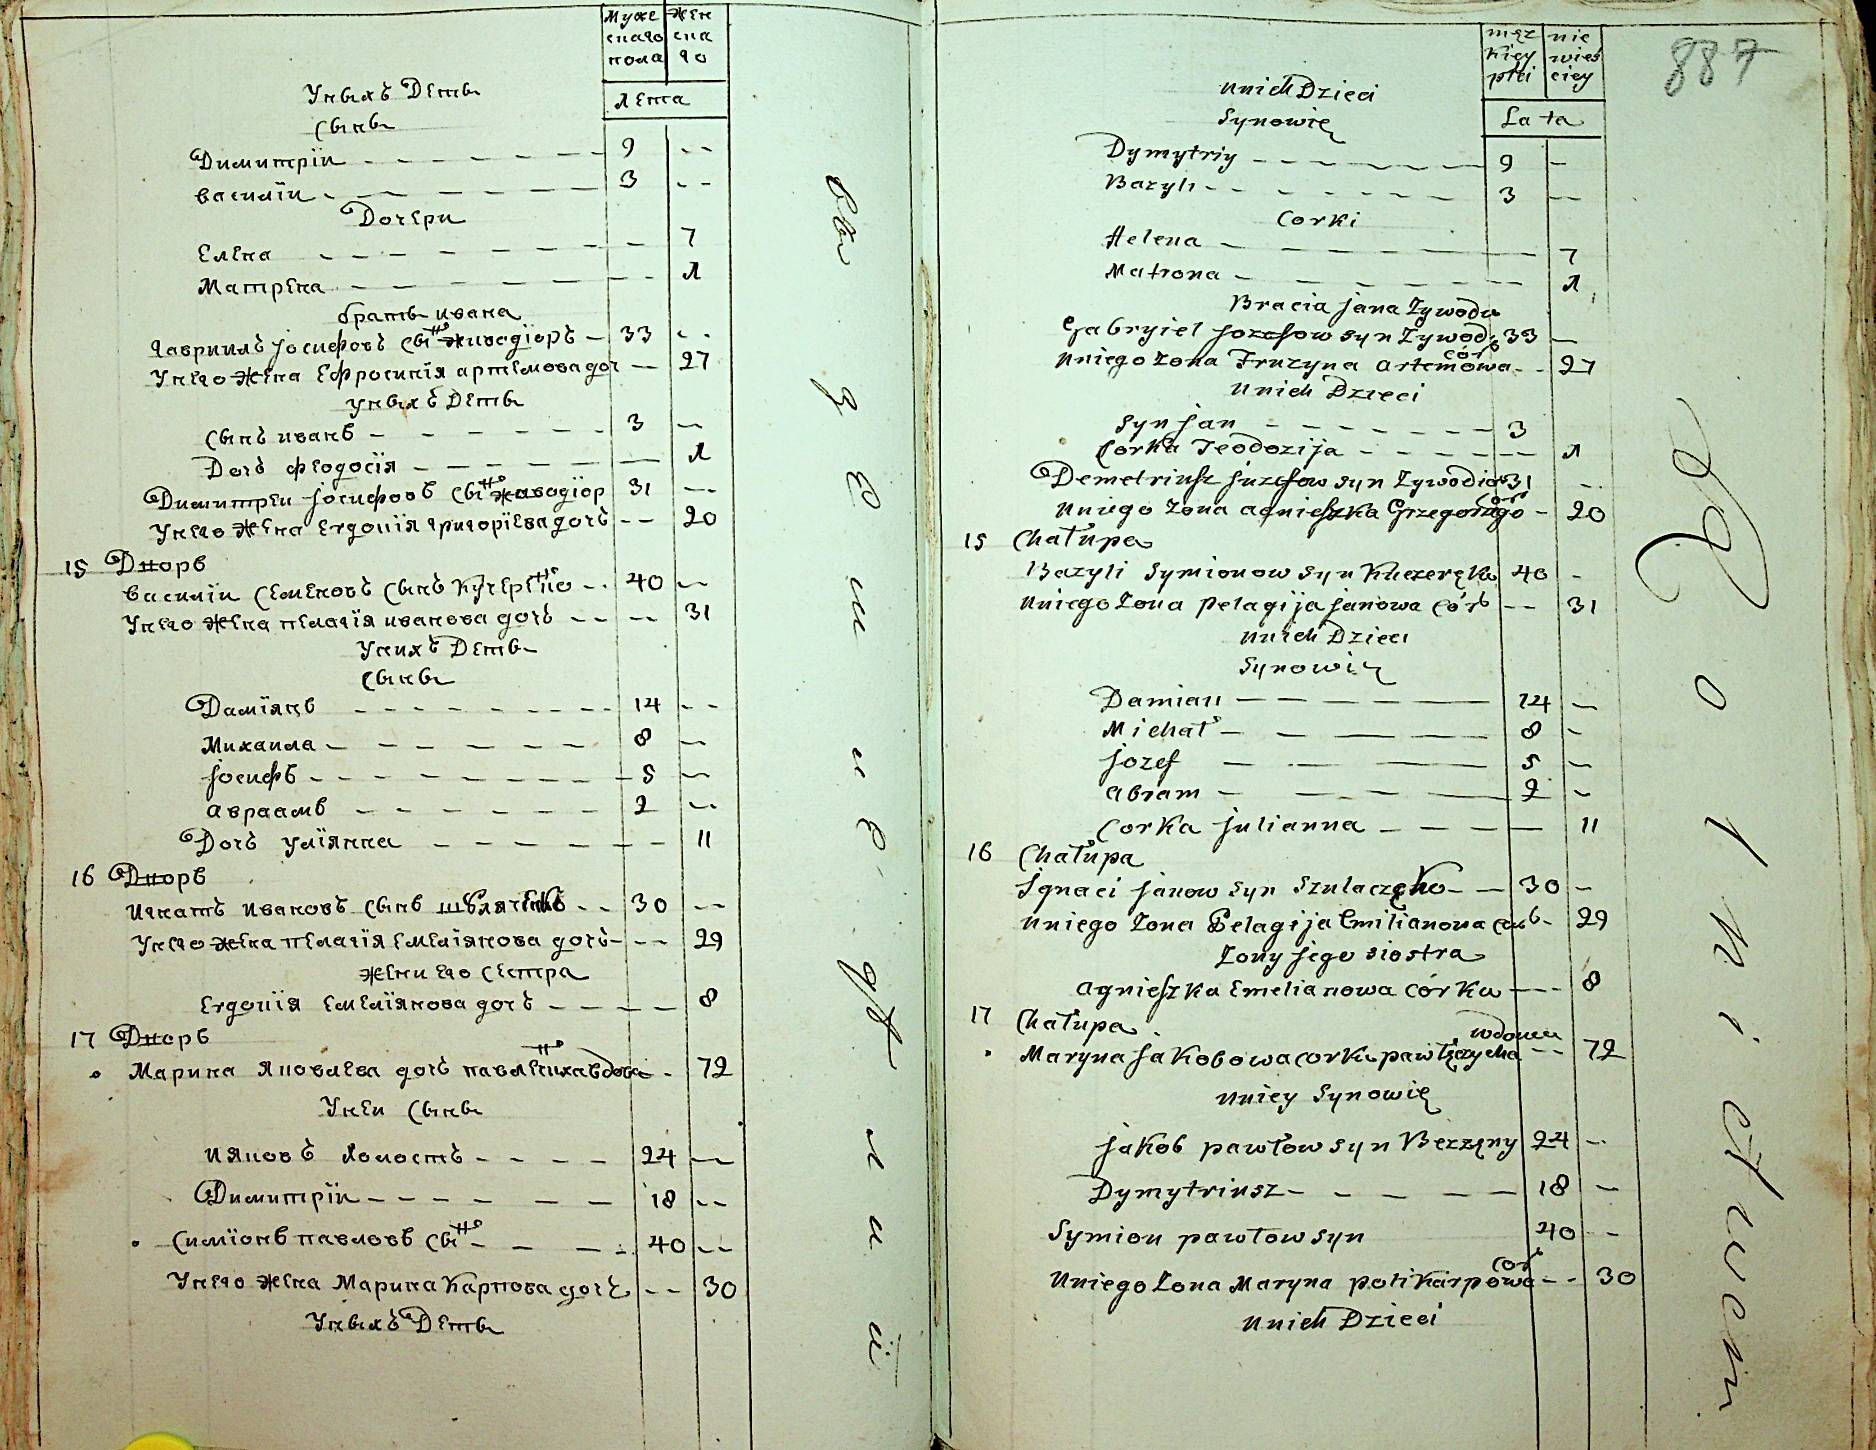 Муже жен
скаго ска
пола го
Лета
Унихъ Дети
Сыны
Димитрїи 9 --
василїи 3 --
Дочери
Елена -- 7
Матрена -- 1
братъ ивана
гаврiилъ Jосифовъ Сынъ живодїоръ 33 --
Унего жена Ефросинїя артемова доч -- 27
унихъ Дети
Сынъ иванъ 3 --
Дочъ феодосїя -- 1
Димитреи Jосифовъ Сынъ живодїор 31 --
Унего жена Евдокїя григорїева дочъ -- 20
15 Дворъ
василїи Семеновъ Сынъ Кучеренко 40 --
Унего жена пелагїя иванова дочъ -- 31
Унихъ Дети
Сыны
Дамїянъ 14 --
Михаила 8 --
Jосифъ 5 --
авраамъ 2 --
Дочъ улїянна -- 11
16 Дворъ
игнатъ ивановъ Сынъ 30 --
Унего жена пелагїя Емелїянова дочъ -- 29
жени его Сестра
Евдокїя Емелїянова дочъ -- 8
17 Дворъ
Марина Яковлева дочъ вдова -- 72
Унеи Сыны
ияковъ Холостъ 24 --
Димитрїи 18 --
Симїонъ павловъ Сынъ 40 --
Унего жена Марина Карпова дочъ -- 30
Унихъ Дети
męz nie
kiey wieś
płci ciey
887
Lata
unich Dzieci
Synowie
Dymytriy 9 --
Bazyli 3 --
Corki
Helena -- 7
Matrona -- 1
Bracia Jana Zywodu
Gabryiel Jozefow syn Zywod: 33 --
uniego zona Fruzyna artemowa cór -- 27
unich Dzieci
Syn Jan 3
Corka Teodozija -- 1
Demetriusz Juzefow syn Zywodior 31 --
uniego zona agnieszka Grzegorzgo cór -- 20
15 Chałupa
Bazyli Symionow syn Kuczeręko 40 -
uniego zona pelagija Janowa córk -- 31
unich Dzieci
Synowie
Damian 14 --
Michał 8 --
Jozef 5 --
abram 2 --
Corka Julianna -- 11
16 Chałupa
Ignaci Janow syn Szulaczęko 30 --
uniego zona Pelagija Emilianowa -- 29
Zony Jego siostra
agnieszka Emelianowa córka -- 8
17 Chałupa
Maryna Jakobowa corka pawłęczycha wdowa -- 72
uniey Synowie
Jakob pawłow syn Bezzęny 24 --
Dymytriusz 18 --
Symion pawłow syn 40 --
uniego zona Maryna polikarpowa cór -- 30
unich Dzieci